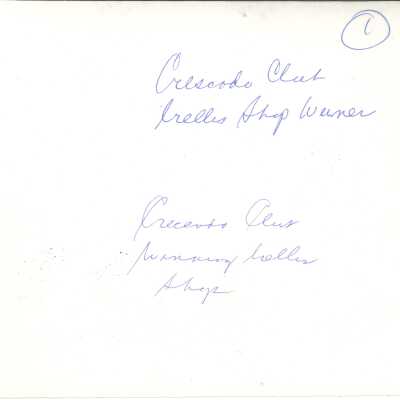 1
Crescendo Club
Trellis Shop Winner
Crecendo Club
Winning Trellis
Shop